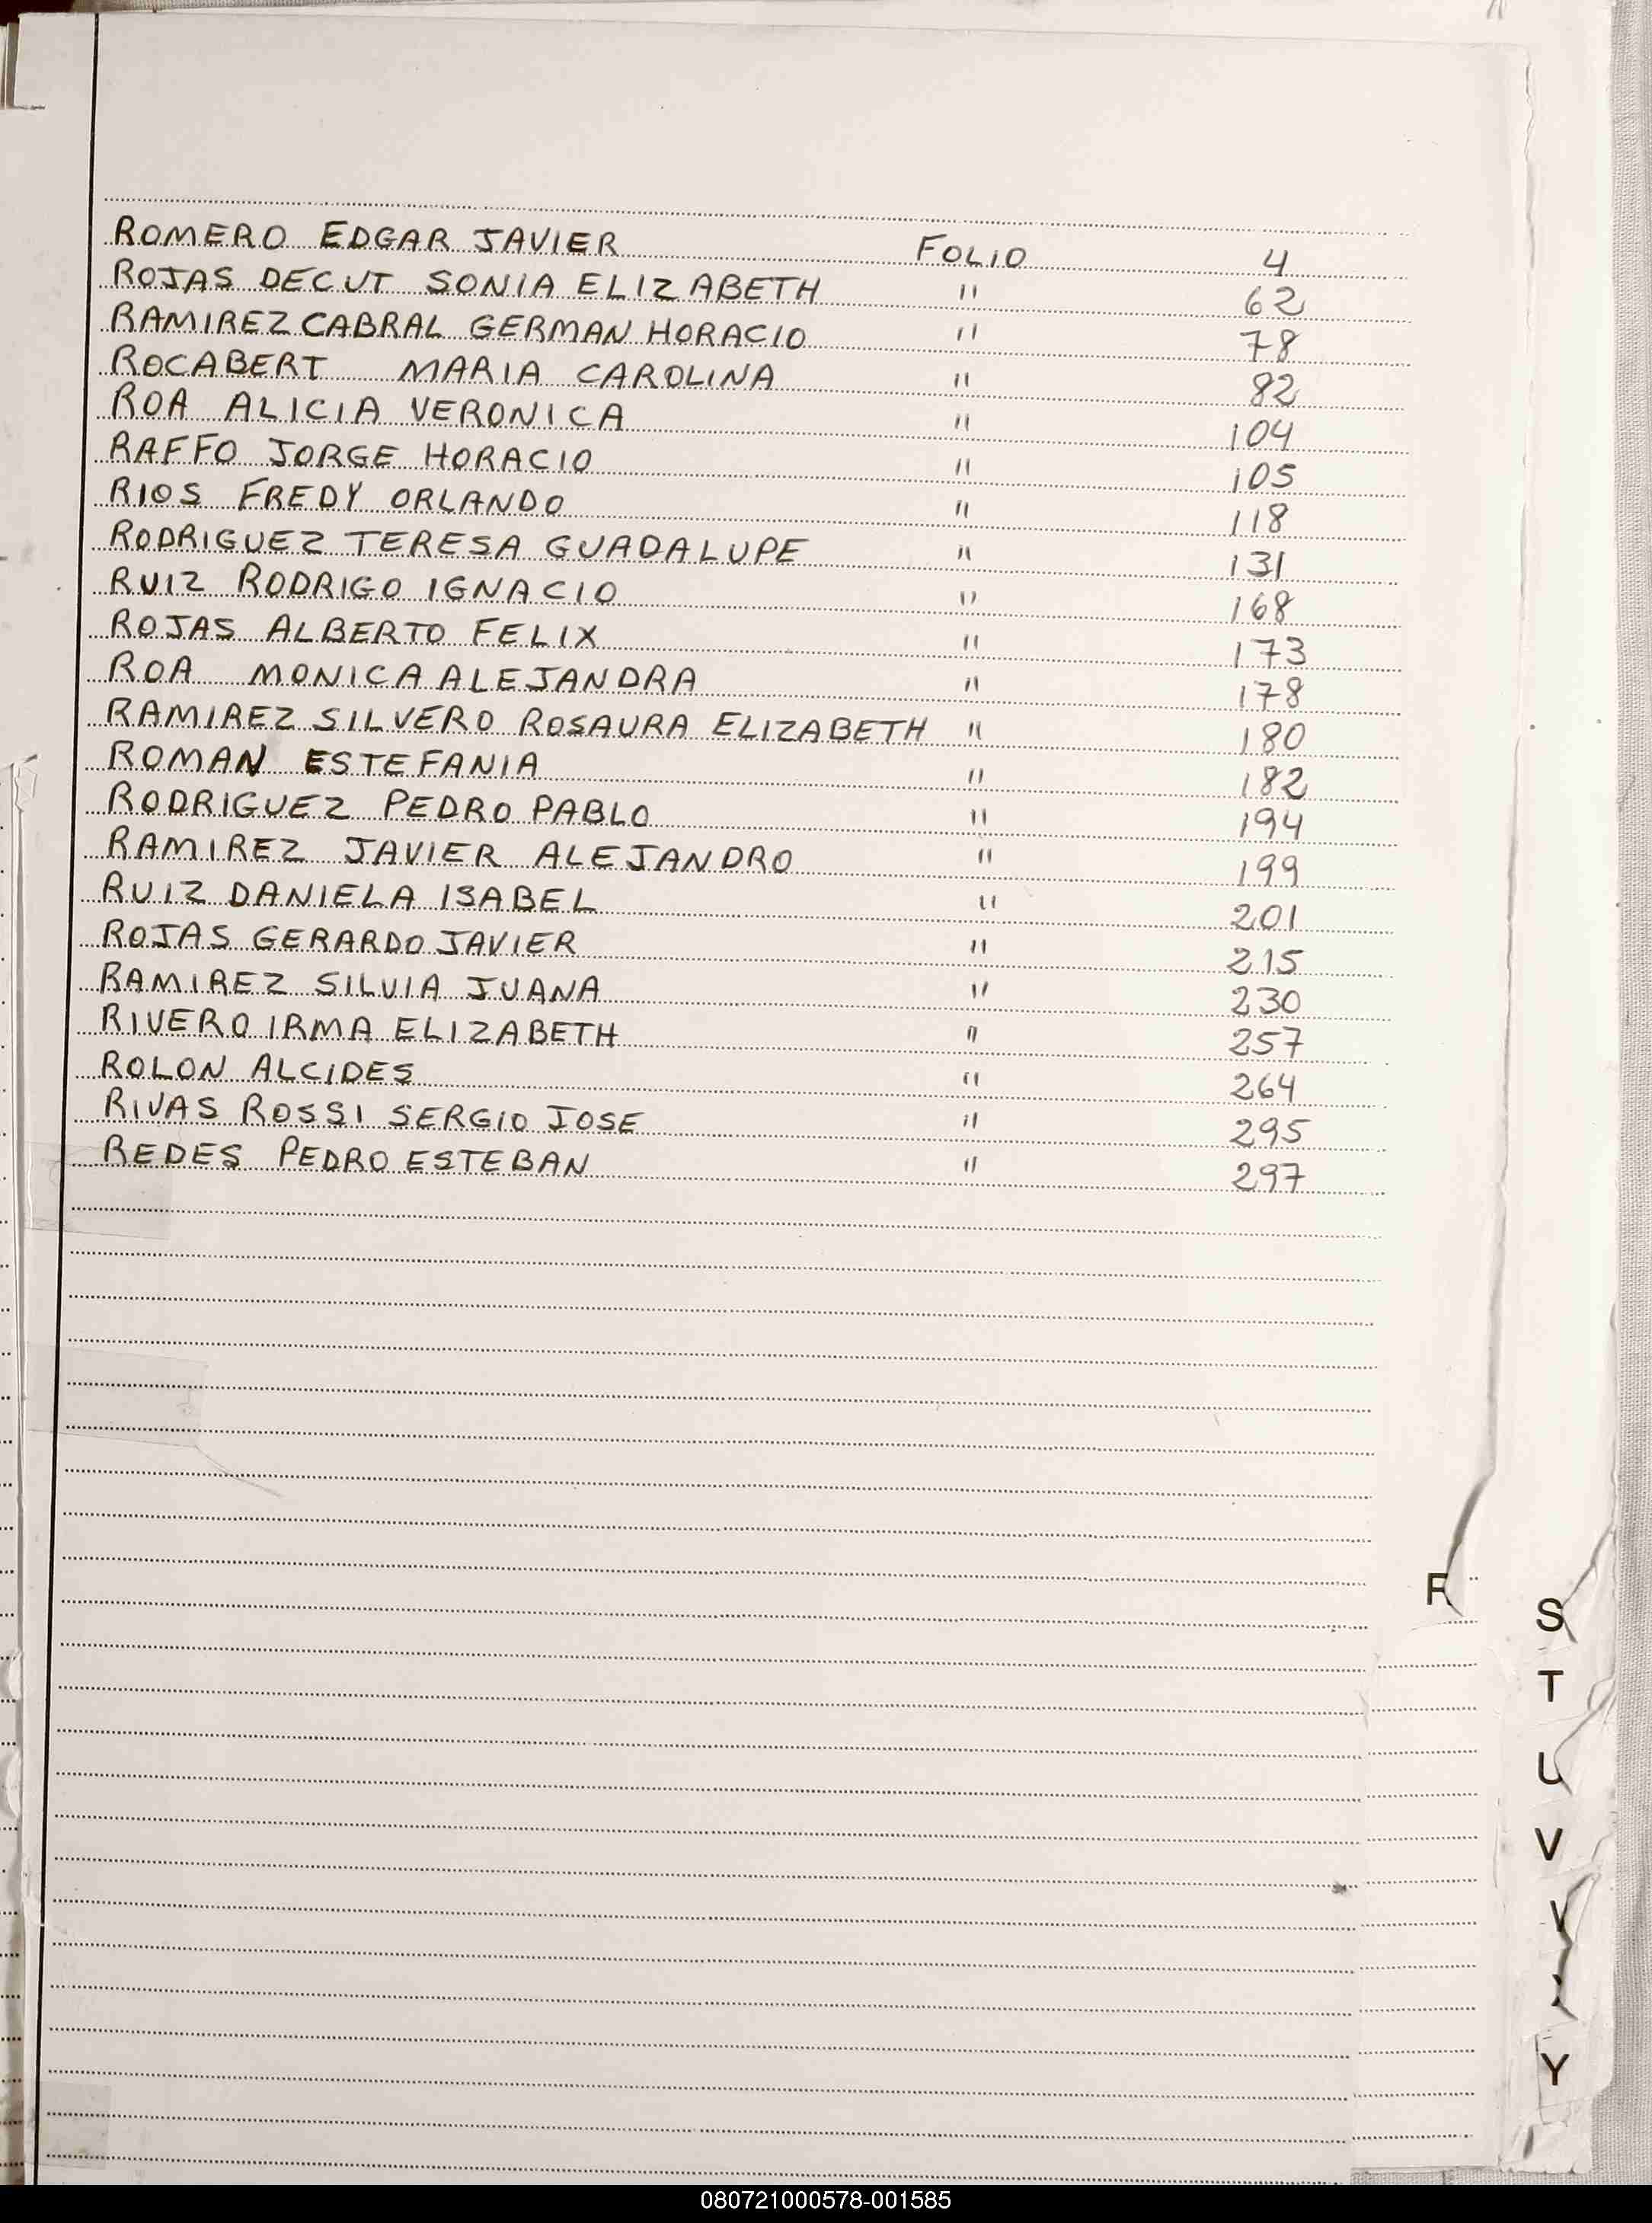 ROMERO EDGAR JAVIER FOLIO 4
ROJAS DECUT SONIA ELIZABETH " 62
RAMIREZ CABRAL GERMAN HORACIO " 78
ROCABERT MARIA CAROLINA " 82
ROA ALICIA VERONICA " 104
RAFFO JORGE HORACIO " 105
RIOS FREDY ORLANDO " 118
RODRIGUEZ TERESA GUADALUPE " 131
RUIZ RODRIGO IGNACIO " 168
ROJAS ALBERTO FELIX " 173
ROA MONICA ALEJANDRA " 178
RAMIREZ SILVERO ROSAURA ELIZABETH " 180
ROMAN ESTEFANIA " 182
RODRIGUEZ PEDRO PABLO " 194
RAMIREZ JAVIER ALEJANDRO " 199
RUIZ DANIELA ISABEL " 201
ROJAS GERARDO JAVIER " 215
RAMIREZ SILVIA JUANA " 230
RIVERO IRMA ELIZABETH " 257
ROLON ALCIDES " 264
RIVAS ROSSI SERGIO JOSE " 295
REDES PEDRO ESTEBAN " 297
R
S
T
U
V
Y
080721000578-001585